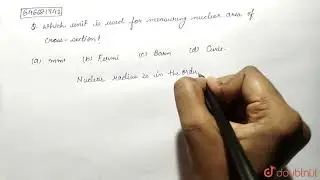 646681342
Q. Which unit is used for measuring nuclear area of
cross-section?
(a) mm (b) Fermi (c) Barn (d) Curie.
Nucleus radius is in the orde
doubtnut